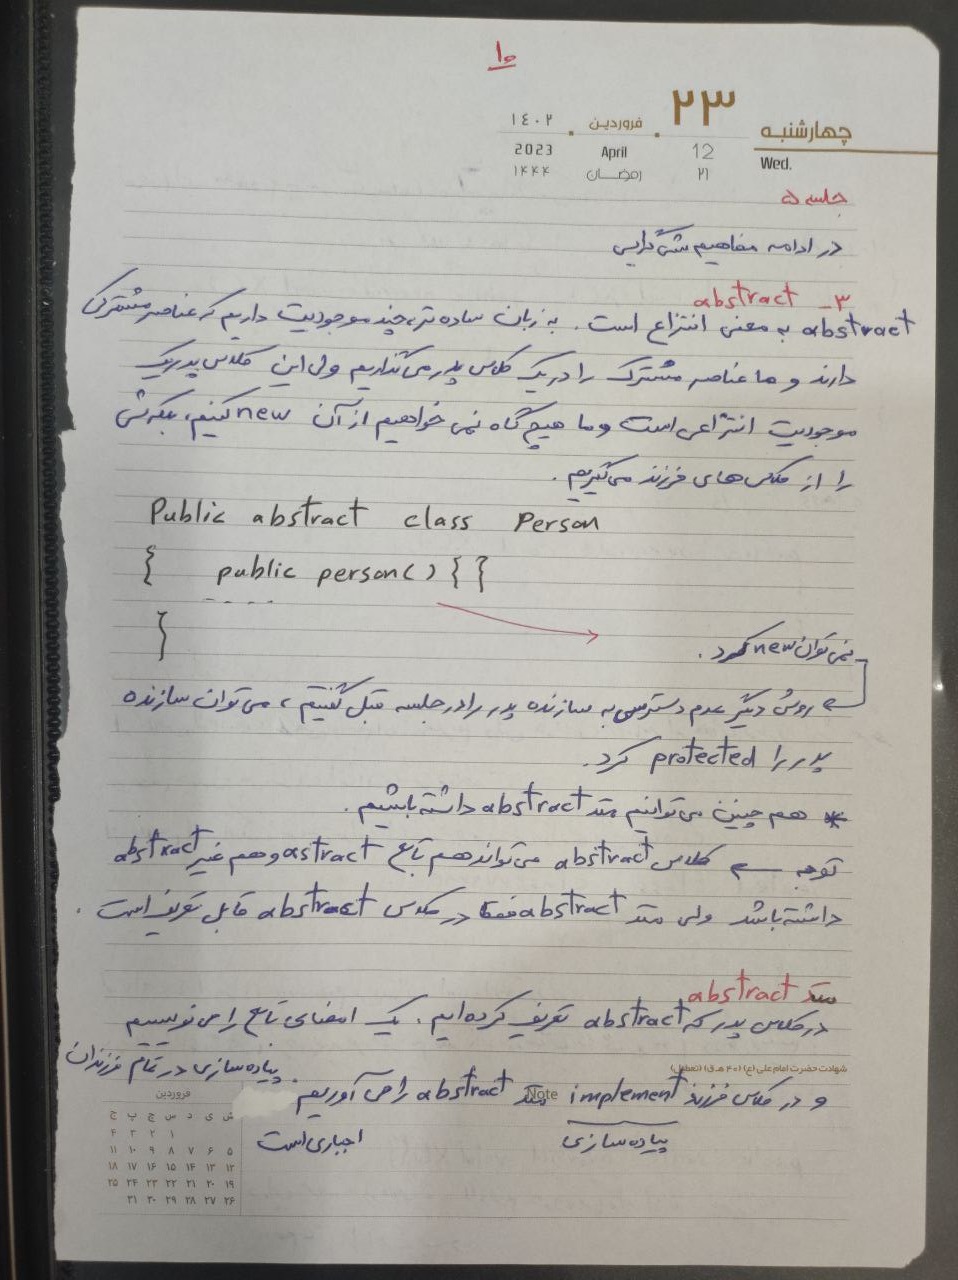 ۱۰
چهارشنبه ۲۳ فروردین ۱۴۰۲
Wed. 12 April 2023
۲۱ رمضان ۱۴۴۴
جلسه ۵
در ادامه مفاهیم شی گرایی
۳- abstract
abstract به معنی انتزاع است. به زبان ساده تر، چند موجودیت داریم که عناصر مشترکی
دارند و ما عناصر مشترک را در یک کلاس پدر می گذاریم ولی این کلاس پدر یک
موجودیت انتزاعی است و ما هیچ گاه نمی خواهیم از آن new کنیم، بلکه شی
را از کلاس های فرزند می گیریم.
Public abstract class Person
{ public person() { }
- - - -
}
نمی توان new کرد.
روش دیگر عدم دسترسی به سازنده پدر را در جلسه قبل گفتیم، می توان سازنده
پدر را protected کرد.
* هم چنین می توانیم متد abstract داشته باشیم.
توجه ← کلاس abstract می تواند هم تابع astract و هم غیر abstract
داشته باشد ولی متد abstract فقط در کلاس abstract قابل تعریف است.
متد abstract
در کلاس پدر که abstract تعریف کرده ایم. یک امضای تابع را می نویسیم
شهادت حضرت امام علی (ع) (۴۰ ه.ق) (تعطیل)
و در کلاس فرزند implement متد abstract را می آوریم. پیاده سازی در تمام فرزندان
Note
پیاده سازی
اجباری است
فروردین
ش ی د س چ پ ج
۱ ۲ ۳ ۴
۵ ۶ ۷ ۸ ۹ ۱۰ ۱۱
۱۲ ۱۳ ۱۴ ۱۵ ۱۶ ۱۷ ۱۸
۱۹ ۲۰ ۲۱ ۲۲ ۲۳ ۲۴ ۲۵
۲۶ ۲۷ ۲۸ ۲۹ ۳۰ ۳۱